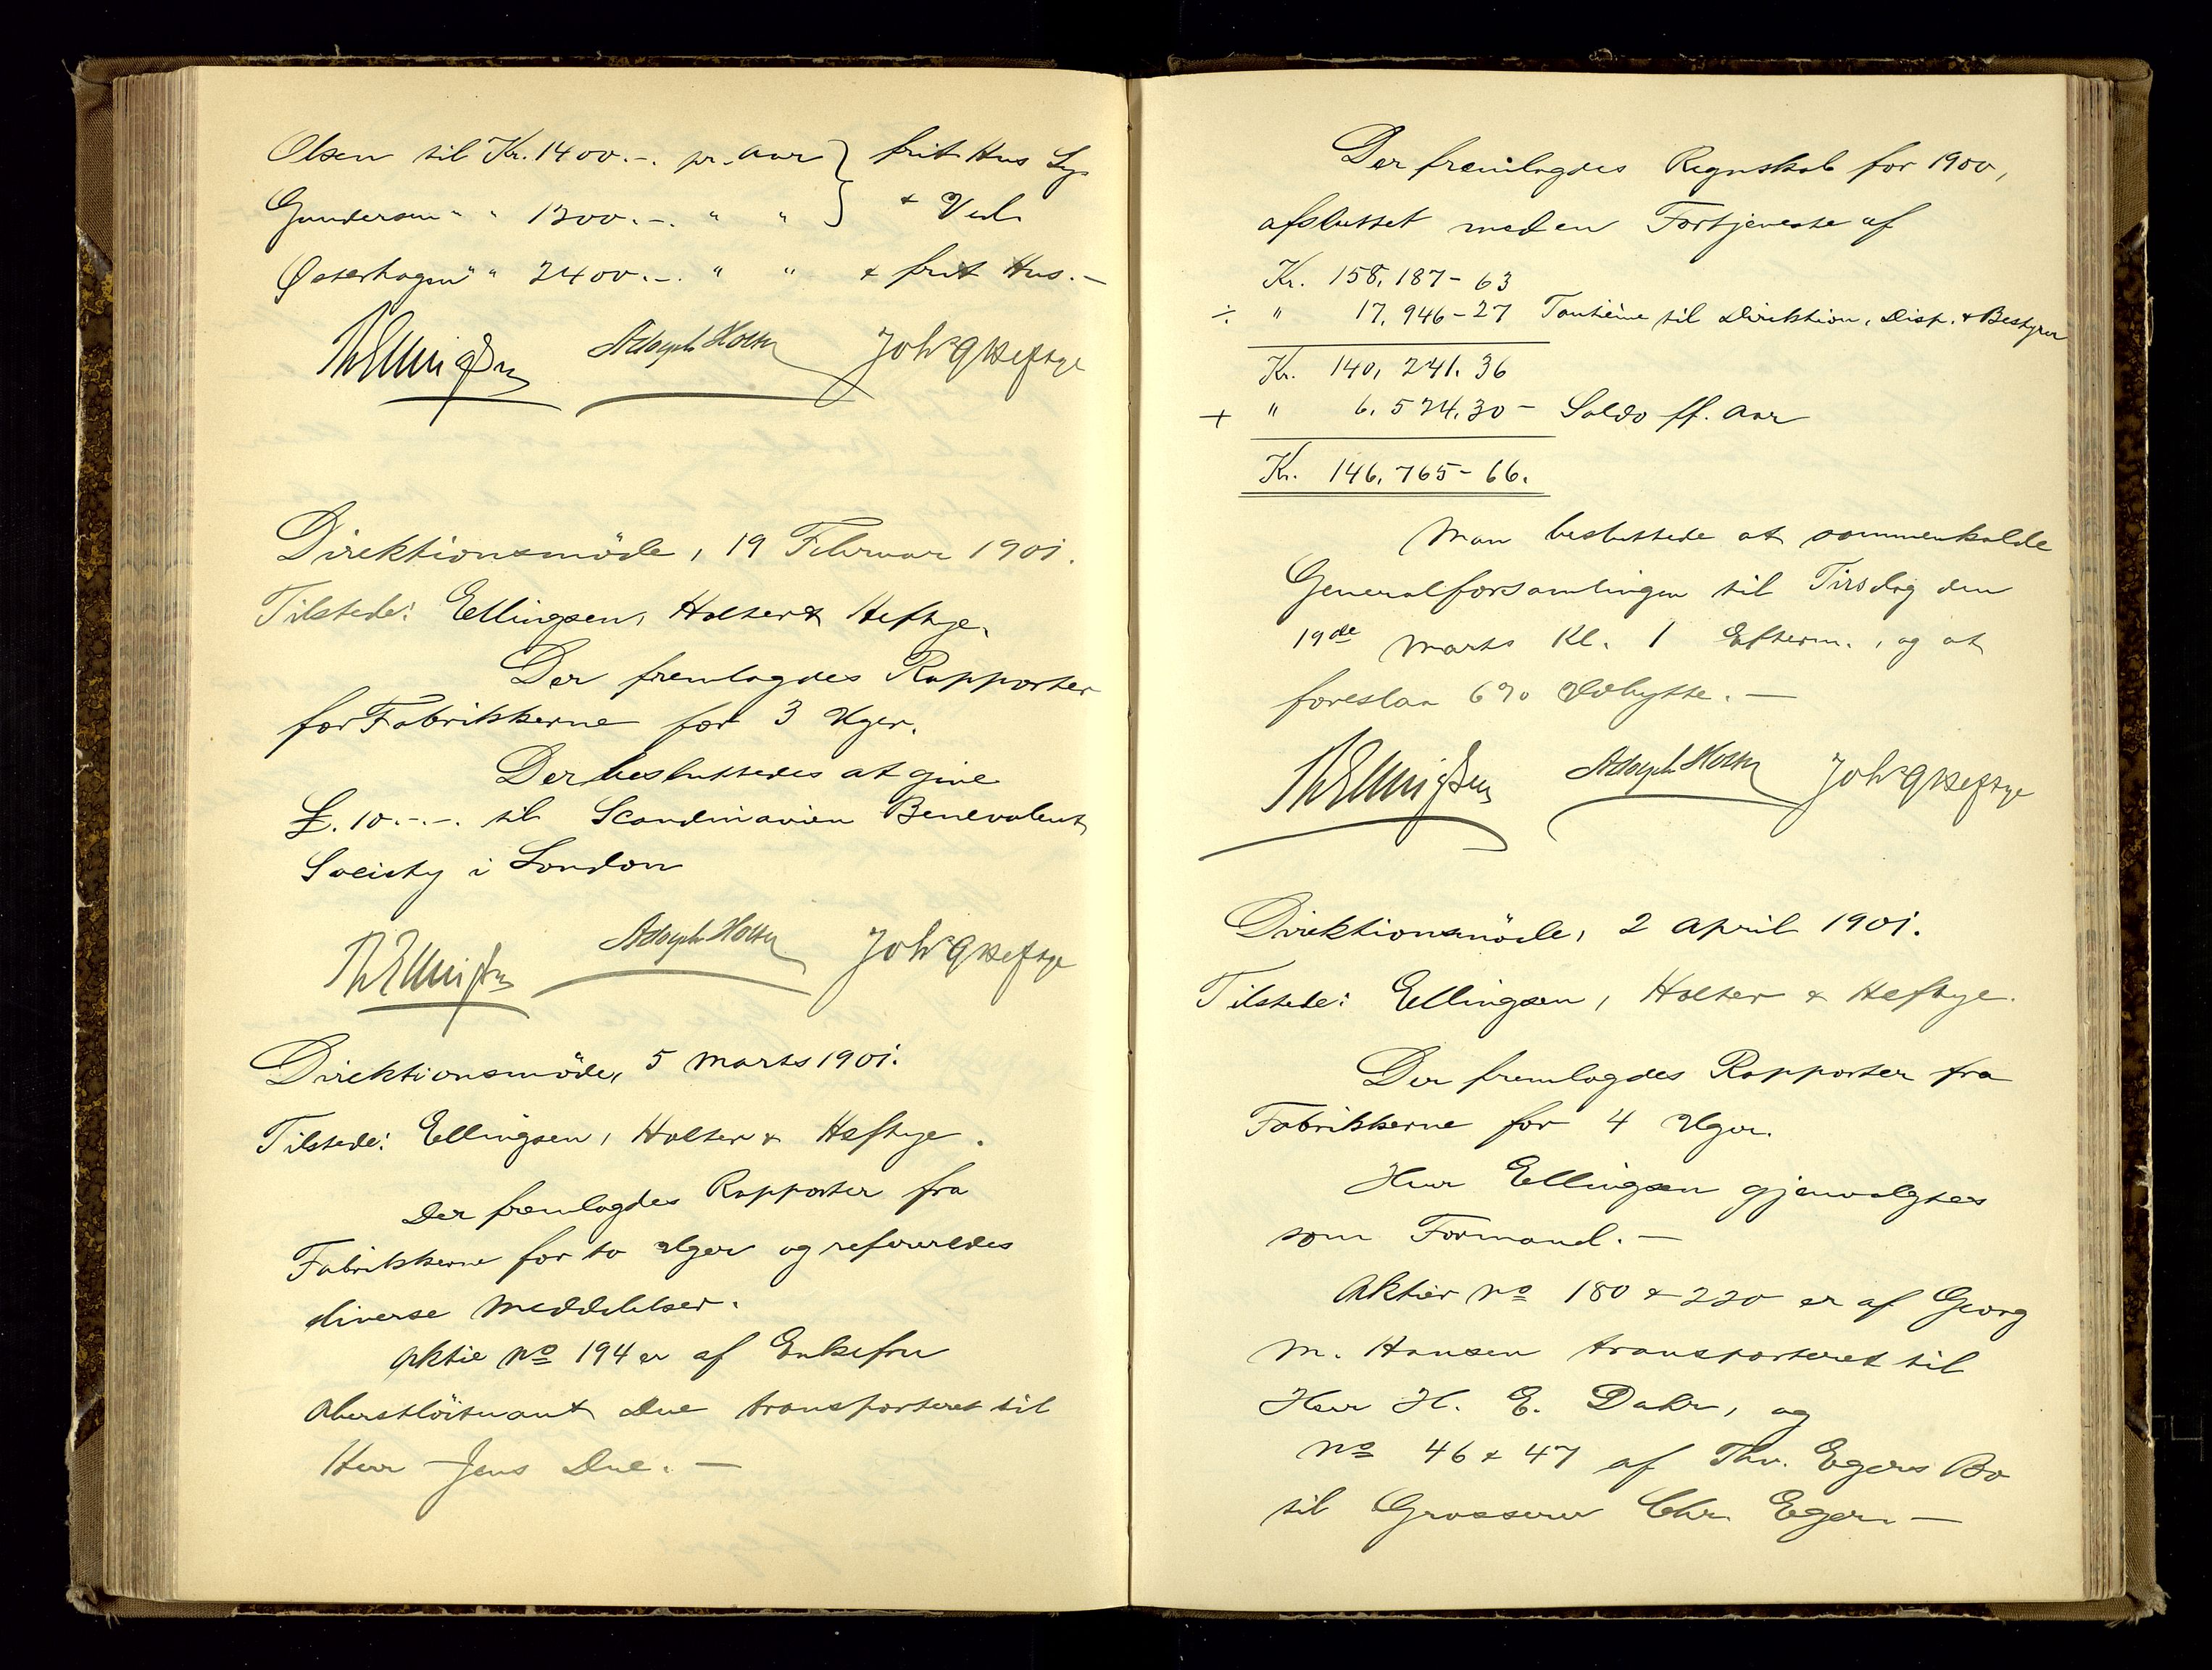 Olsen til Kr. 1400.-. pr. Aar } frit Hus Lys
Gundersen " " 1300.-. " " } + Ved
Østerhagen " " 2400.-. " " & frit Hus.-
ThEllingsen Adolph Holter Johs G Heftye
Direktionsmöde, 19 Februar 1901.
Tilstede: Ellingsen, Holter & Heftye.
Der fremlagdes Rapporter
for Fabrikkerne for 3 Uger.
Der besluttedes at give
£. 10.-.-. til Scandinavien Benevolent
Society i London
ThEllingsen Adolph Holter Johs G Heftye
Direktionsmöde, 5 Marts 1901.
Tilstede: Ellingsen, Holter & Heftye.
Der fremlagdes Rapporter fra
Fabrikkerne for to Uger og refereredes
diverse Meddelelser.
Aktie No 194 er af Enkefru
Oberstlöitnant Due transporteret til
Herr Jens Due. —
Der fremlagdes Regnskab for 1900,
afsluttet med en Fortjeneste af
Kr. 158,187-63
÷ " 17,946-27 Tantième til Direktion, Disp. & Bestyrer
Kr. 140,241.36
+ " 6,524.30- Saldo ff. Aar
Kr. 146,765-66.
Man besluttede at sammenkalde
Generalforsamlingen til Tirsdag den
19de Marts Kl. 1 Efterm., og at
foreslaa 6% Udbytte. —
ThEllingsen Adolph Holter Johs G Heftye
Direktionsmöde, 2 April 1901.
Tilstede: Ellingsen, Holter & Heftye.
Der fremlagdes Rapporter fra
Fabrikkerne for 4 Uger.
Herr Ellingsen gjenvalgtes
som Formand. —
Aktier No 180 & 220 er af Georg
M. Hansen transporteret til
Herr H. E. Dahr, og
No 46 & 47 af Thv. Egers Bo
til Grosserer Chr. Eger. —